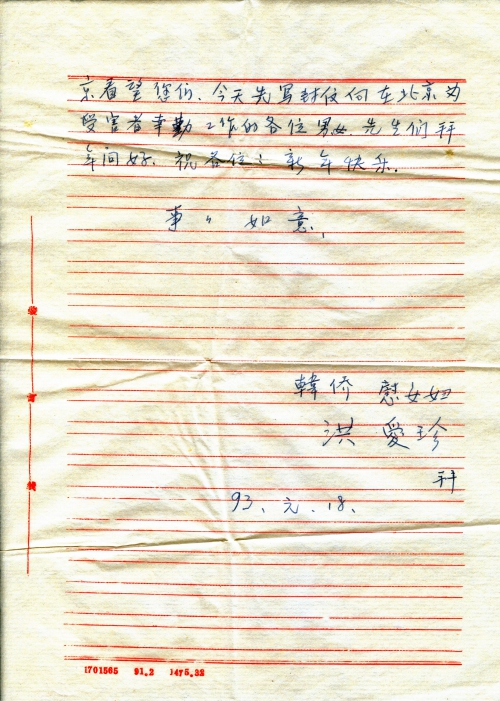 京看望您们、今天先写封信向在北京为
受害者辛勤工作的各位男女先生们拜
年问好、祝各位：新年快乐.
事〃如意,
韓侨 慰女妇
洪 愛珍
拜
93、元、18、
装
订
线
1701565 91.2 1475.32